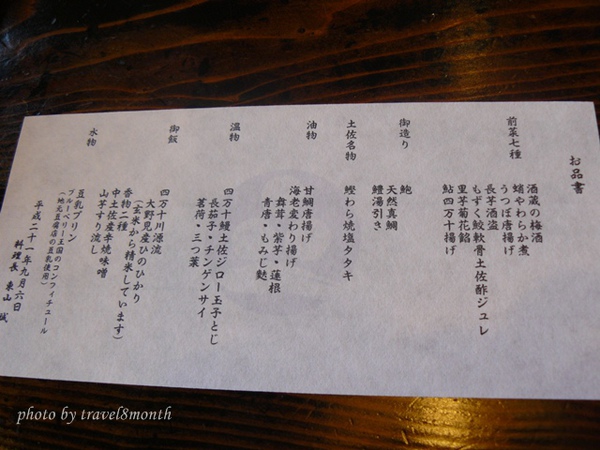 お品書
前菜七種
酒蔵の梅酒
蛸やわらか煮
うつぼ唐揚げ
長芋酒盗
もずく鮫軟骨土佐酢ジュレ
里芋菊花餡
鮎四万十揚げ
御造り
鮑
天然真鯛
鱧湯引き
土佐名物
鰹わら焼塩タタキ
油物
甘鯛唐揚げ
海老変わり揚げ
舞茸・紫芋・蓮根
青唐・もみじ麩
温物
四万十鰻土佐ジロー玉子とじ
長茄子・チンゲンサイ
茗荷・三つ葉
御飯
四万十川源流
大野見産ひのひかり
(玄米から精米しています)
香物二種
中土佐産辛焼味噌
山芋すり流し
水物
豆乳プリン
ブルーベリー王国のコンフィチュール
(地元豆腐店の豆乳使用)
平成二十一年九月六日
料理長 東山
photo by travel8month